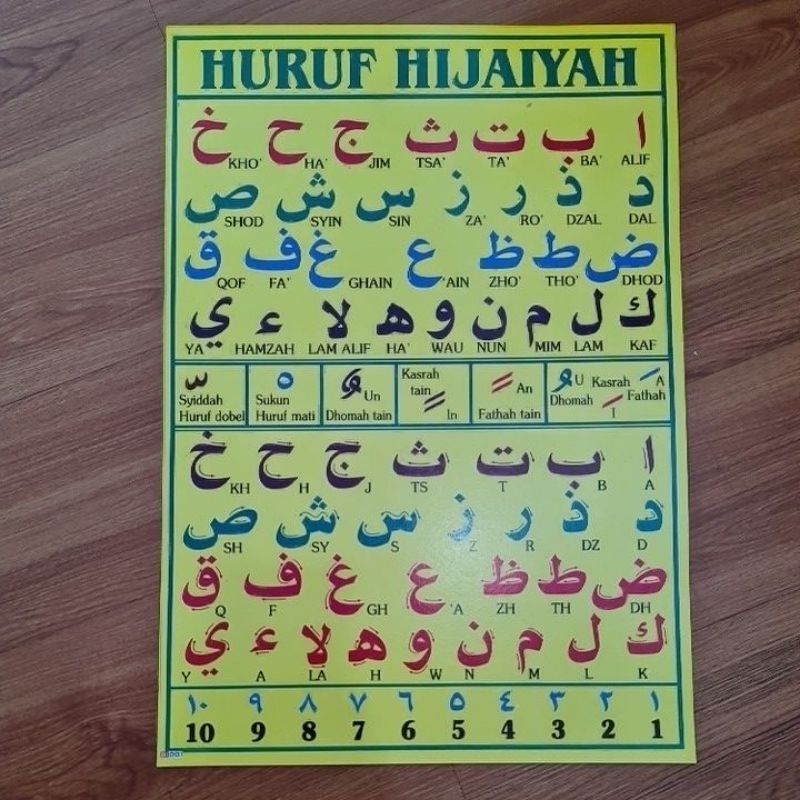 HURUF HIJAIYAH
ا ب ت ث ج ح خ
ALIF BA' TA' TSA' JIM HA' KHO'
د ذ ر ز س ش ص
DAL DZAL RO' ZA' SIN SYIN SHOD
ض ط ظ ع غ ف ق
DHOD THO' ZHO' 'AIN GHAIN FA' QOF
ك ل م ن و ه لا ء ي
KAF LAM MIM NUN WAU HA' LAM ALIF HAMZAH YA
Syiddah Huruf dobel
Sukun Huruf mati
Un Dhomah tain
Kasrah tain In
An Fathah tain
U Dhomah Kasrah I A Fathah
ا ب ت ث ج ح خ
A B T TS J H KH
د ذ ر ز س ش ص
D DZ R Z S SY SH
ض ط ظ ع غ ف ق
DH TH ZH 'A GH F Q
ك ل م ن و ه لا ء ي
K L M N W H LA A Y
١ ٢ ٣ ٤ ٥ ٦ ٧ ٨ ٩ ١٠
10 9 8 7 6 5 4 3 2 1